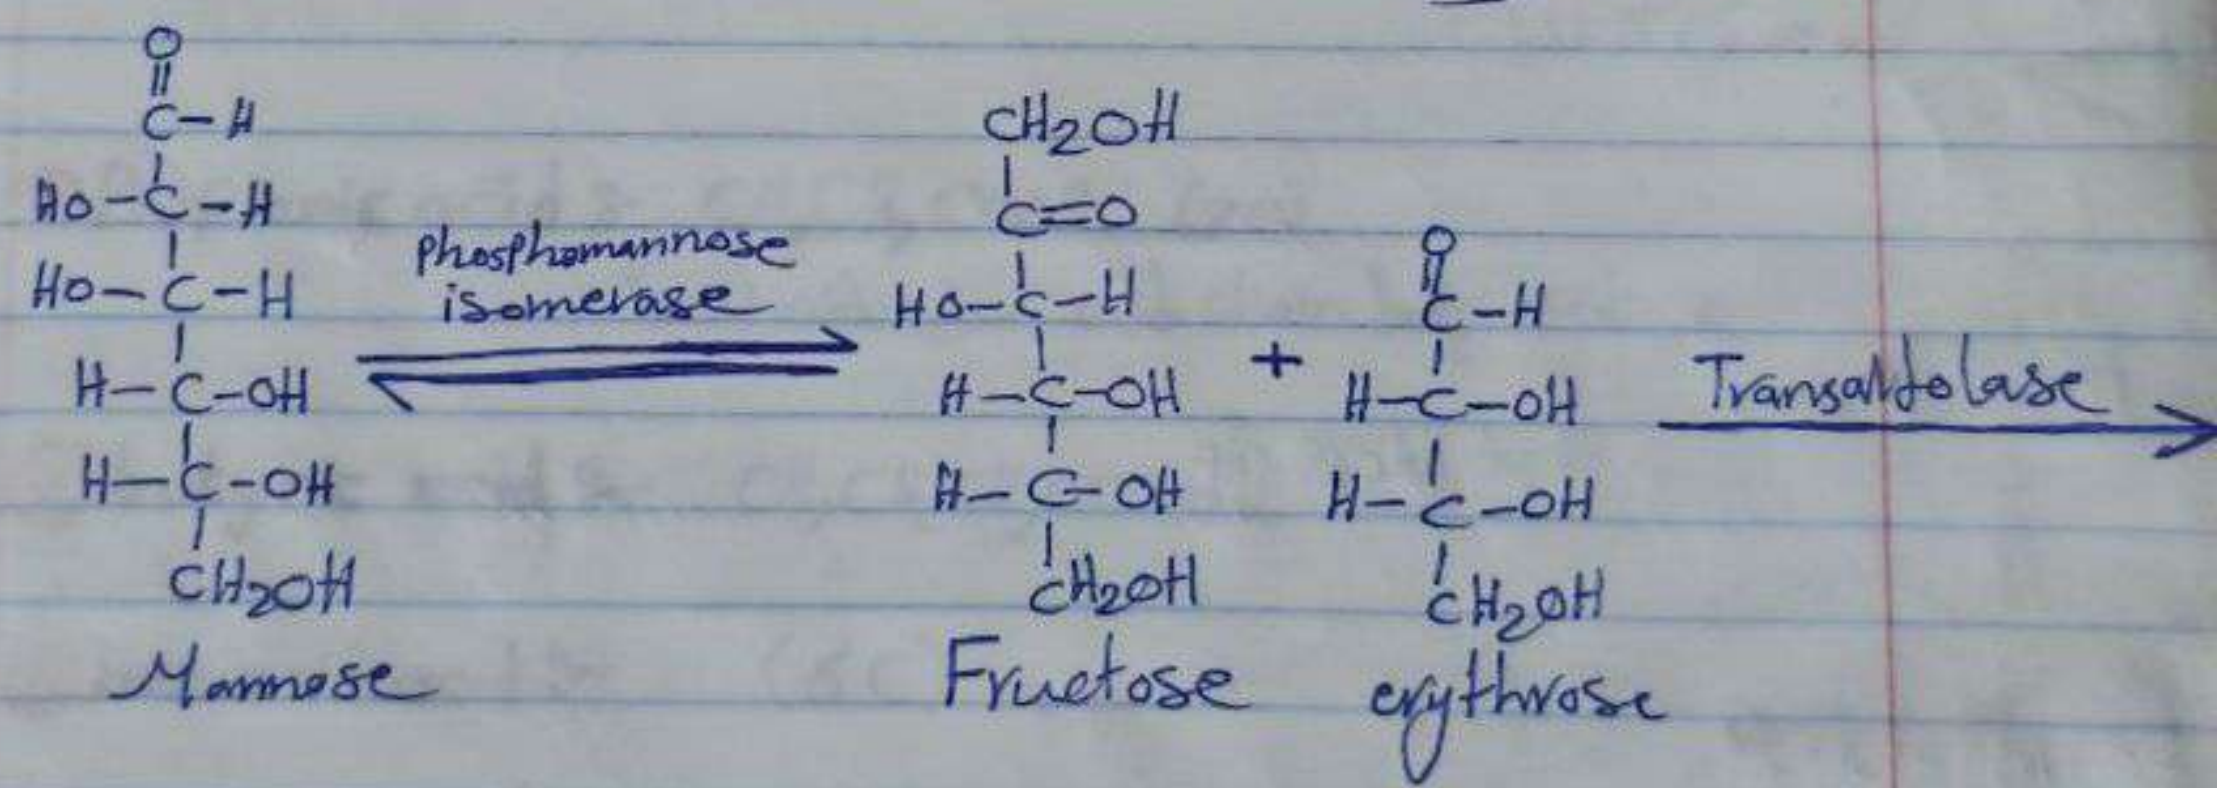 O
||
C-H
HO-C-H
HO-C-H
H-C-OH
H-C-OH
CH2OH
Mannose
phosphomannose
isomerase
CH2OH
C=O
HO-C-H
H-C-OH
H-C-OH
CH2OH
Fructose
+
O
||
C-H
H-C-OH
H-C-OH
CH2OH
erythrose
Transaldolase